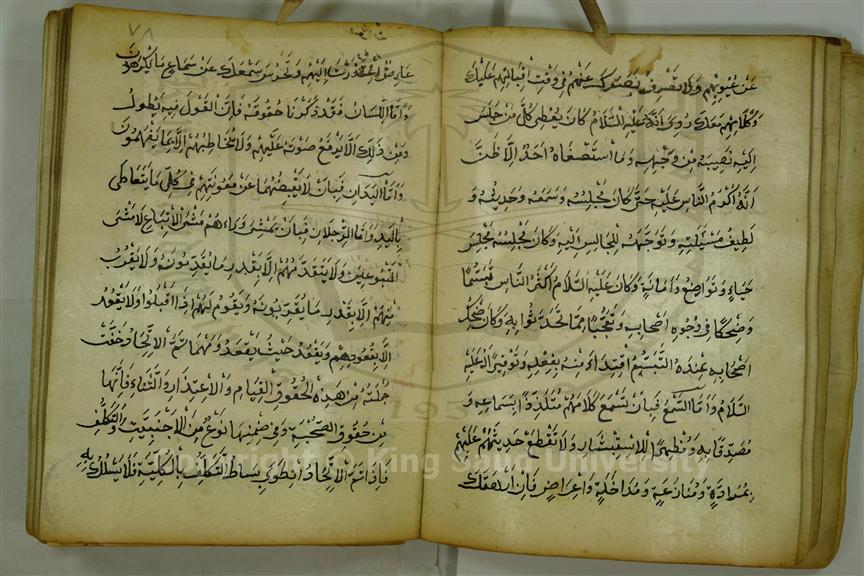 عن عيوبهم ولا تصرف بصرك عنهم في وقت اقبالهم عليك
وكلامهم معك روي انه عليه السلام كان يعطي كل من جلس
اليه نصيبه من وجهه وما استصغاه احد الا ظن
انه اكرم الناس عليه حتى كان مجلسه وسمعه وحديثه و
لطيف مسئلته وتوجهه للجالس اليه وكان مجلسه مجلس
حياء وتواضع وامانة وكان عليه السلام اكثر الناس تبسما
وضحكا في وجوه اصحابه وتعجبا مما تحدثوا به وكان ضحك
اصحابه عنده التبسم اقتداء منه بفعله وتوقيرا له عليه
السلام واما السمع فبأن تسمع كلامهم متلذذا بسماعه و
مصدقا به ومظهرا للاستبشار ولا تقطع حديثهم عليهم
بمرادة ومنازعة ومداخلة واعراض فان ارهقك
٧٨
عارض اعتذرت اليهم وتحرس سمعك عن سماع ما يكرهون
واما اللسان فقد ذكرنا حقوقه فان القول فيه يطول
ومن ذلك الا يرفع صوته عليهم ولا يخاطبهم الا بما يفهمون
واما اليدان فبان لا يقبضهما عن معونتهم في كل ما يتعاطى
باليد واما الرجلان فبان يمشى وراءهم مشى الاتباع لا مشى
المتبوعين ولا يتقدمهم الا بقدر ما يقدمونه ولا يقرب
منهم الا بقدر ما يقربونه ويقوم لهم اذا اقبلوا ولا يقعد
الا بقعودهم ويقعد حيث يقعد ومهما تم الاتحاد خفت
جملة من هذه الحقوق القيام والاعتذار والثناء فانها
من حقوق الصحبة وفي ضمنها نوع من الاجنبية والتكلف
فاذا تم الاتحاد انطوى بساط التكلف بالكلية فلا يسلك به
Copyright © King Saud University
195